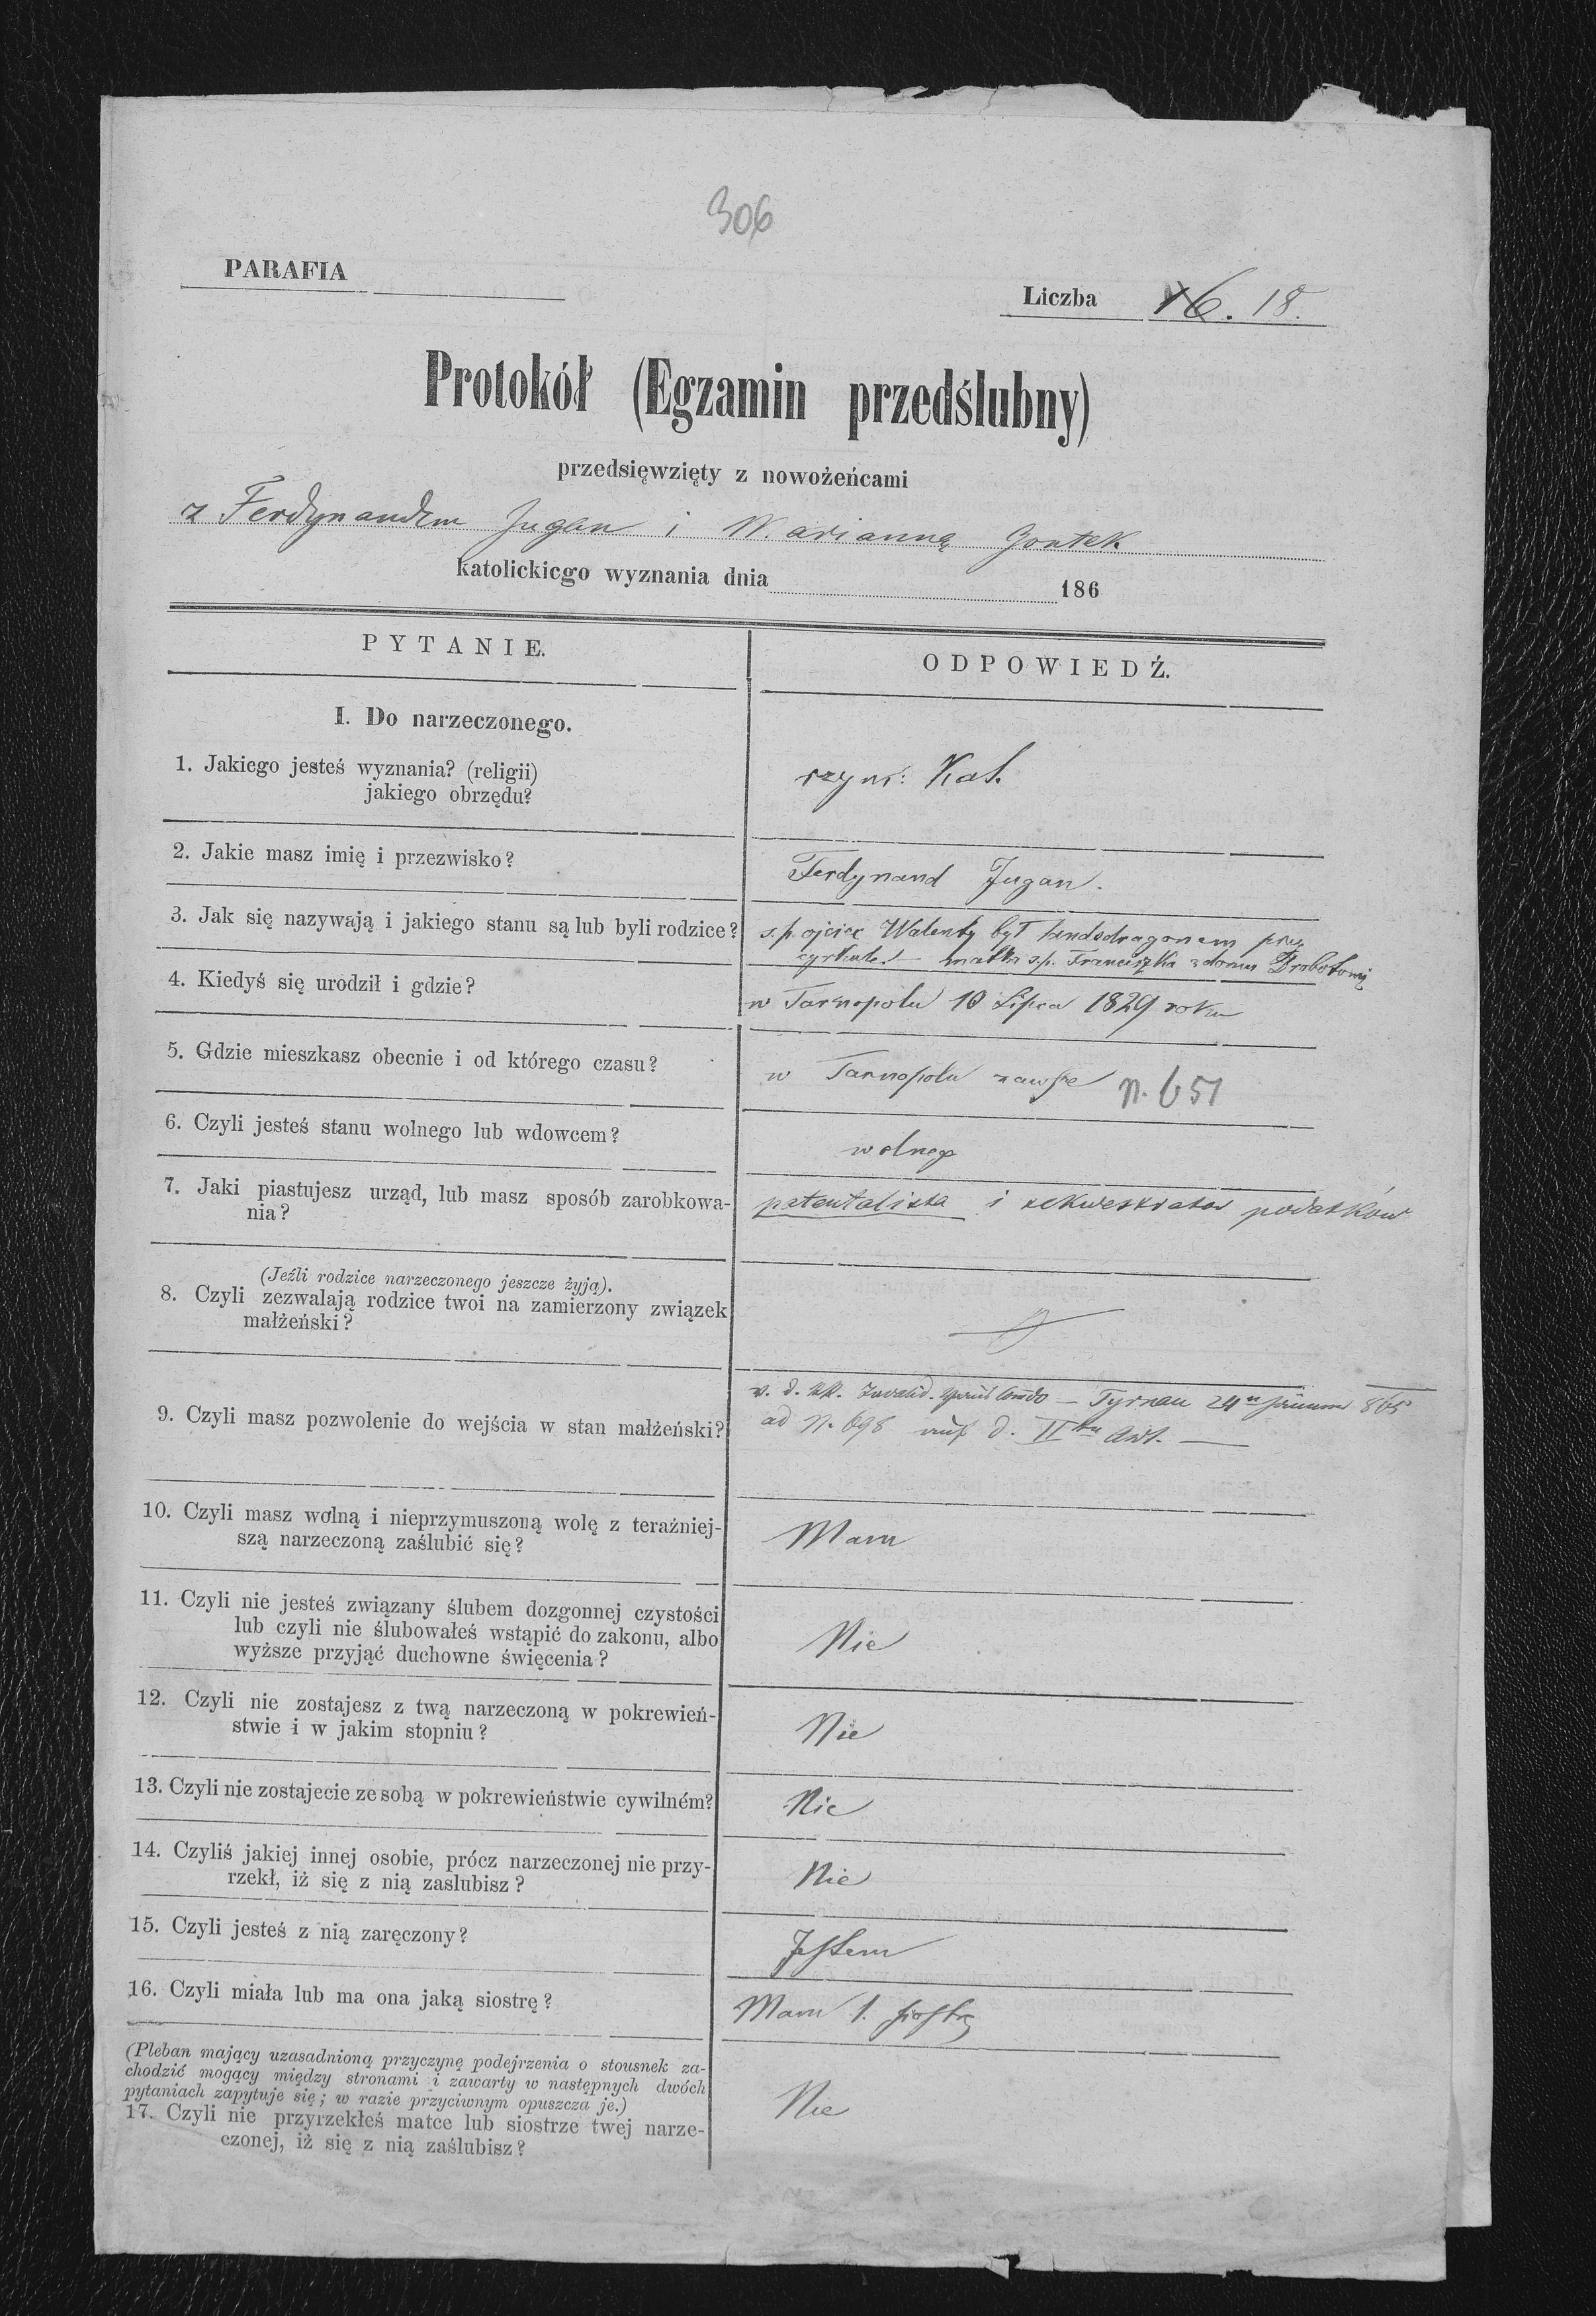 306
PARAFIA
Liczba 16. 18.
Protokół (Egzamin przedślubny)
przedsięwzięty z nowożeńcami
z Ferdynandem Jugan i Marianną Gontek
katolickiego wyznania dnia 186
PYTANIE.
ODPOWIEDŹ.
I. Do narzeczonego.
1. Jakiego jesteś wyznania? (religii)
jakiego obrzędu?
rzym: Kat.
2. Jakie masz imię i przezwisko?
Ferdynand Jugan.
3. Jak się nazywają i jakiego stanu są lub byli rodzice?
s.p. ojciec Walenty był landsdragonem przy
cyrkule. – matka s.p. Franciszka z domu
4. Kiedyś się urodził i gdzie?
w Tarnopolu 10 Lipca 1829 roku
5. Gdzie mieszkasz obecnie i od którego czasu?
w Tarnopolu zawsze N. 651
6. Czyli jesteś stanu wolnego lub wdowcem?
wolnego
7. Jaki piastujesz urząd, lub masz sposób zarobkowa-
nia?
patentalista i sekwestrator podatków
(Jeźli rodzice narzeczonego jeszcze żyją).
8. Czyli zezwalają rodzice twoi na zamierzony związek
małżeński?
9. Czyli masz pozwolenie do wejścia w stan małżeński?
v. d. kk. Invalid. – Tyrnau 24 865
ad N. 698 d. II
10. Czyli masz wolną i nieprzymuszoną wolę z teraźniej-
szą narzeczoną zaślubić się?
Mam
11. Czyli nie jesteś związany ślubem dozgonnej czystości
lub czyli nie ślubowałeś wstąpić do zakonu, albo
wyższe przyjąć duchowne święcenia?
Nie
12. Czyli nie zostajesz z twą narzeczoną w pokrewień-
stwie i w jakim stopniu?
Nie
13. Czyli nie zostajecie ze sobą w pokrewieństwie cywilném?
Nie
14. Czyliś jakiej innej osobie, prócz narzeczonej nie przy-
rzekł, iż się z nią zaslubisz?
Nie
15. Czyli jesteś z nią zaręczony?
Jestem
16. Czyli miała lub ma ona jaką siostrę?
Mam 1. siostrę
(Pleban mający uzasadnioną przyczynę podejrzenia o stousnek za-
chodzić mogący między stronami i zawarty w następnych dwóch
pytaniach zapytuje się; w razie przyciwnym opuszcza je.)
17. Czyli nie przyrzekłeś matce lub siostrze twej narze-
czonej, iż się z nią zaślubisz?
Nie